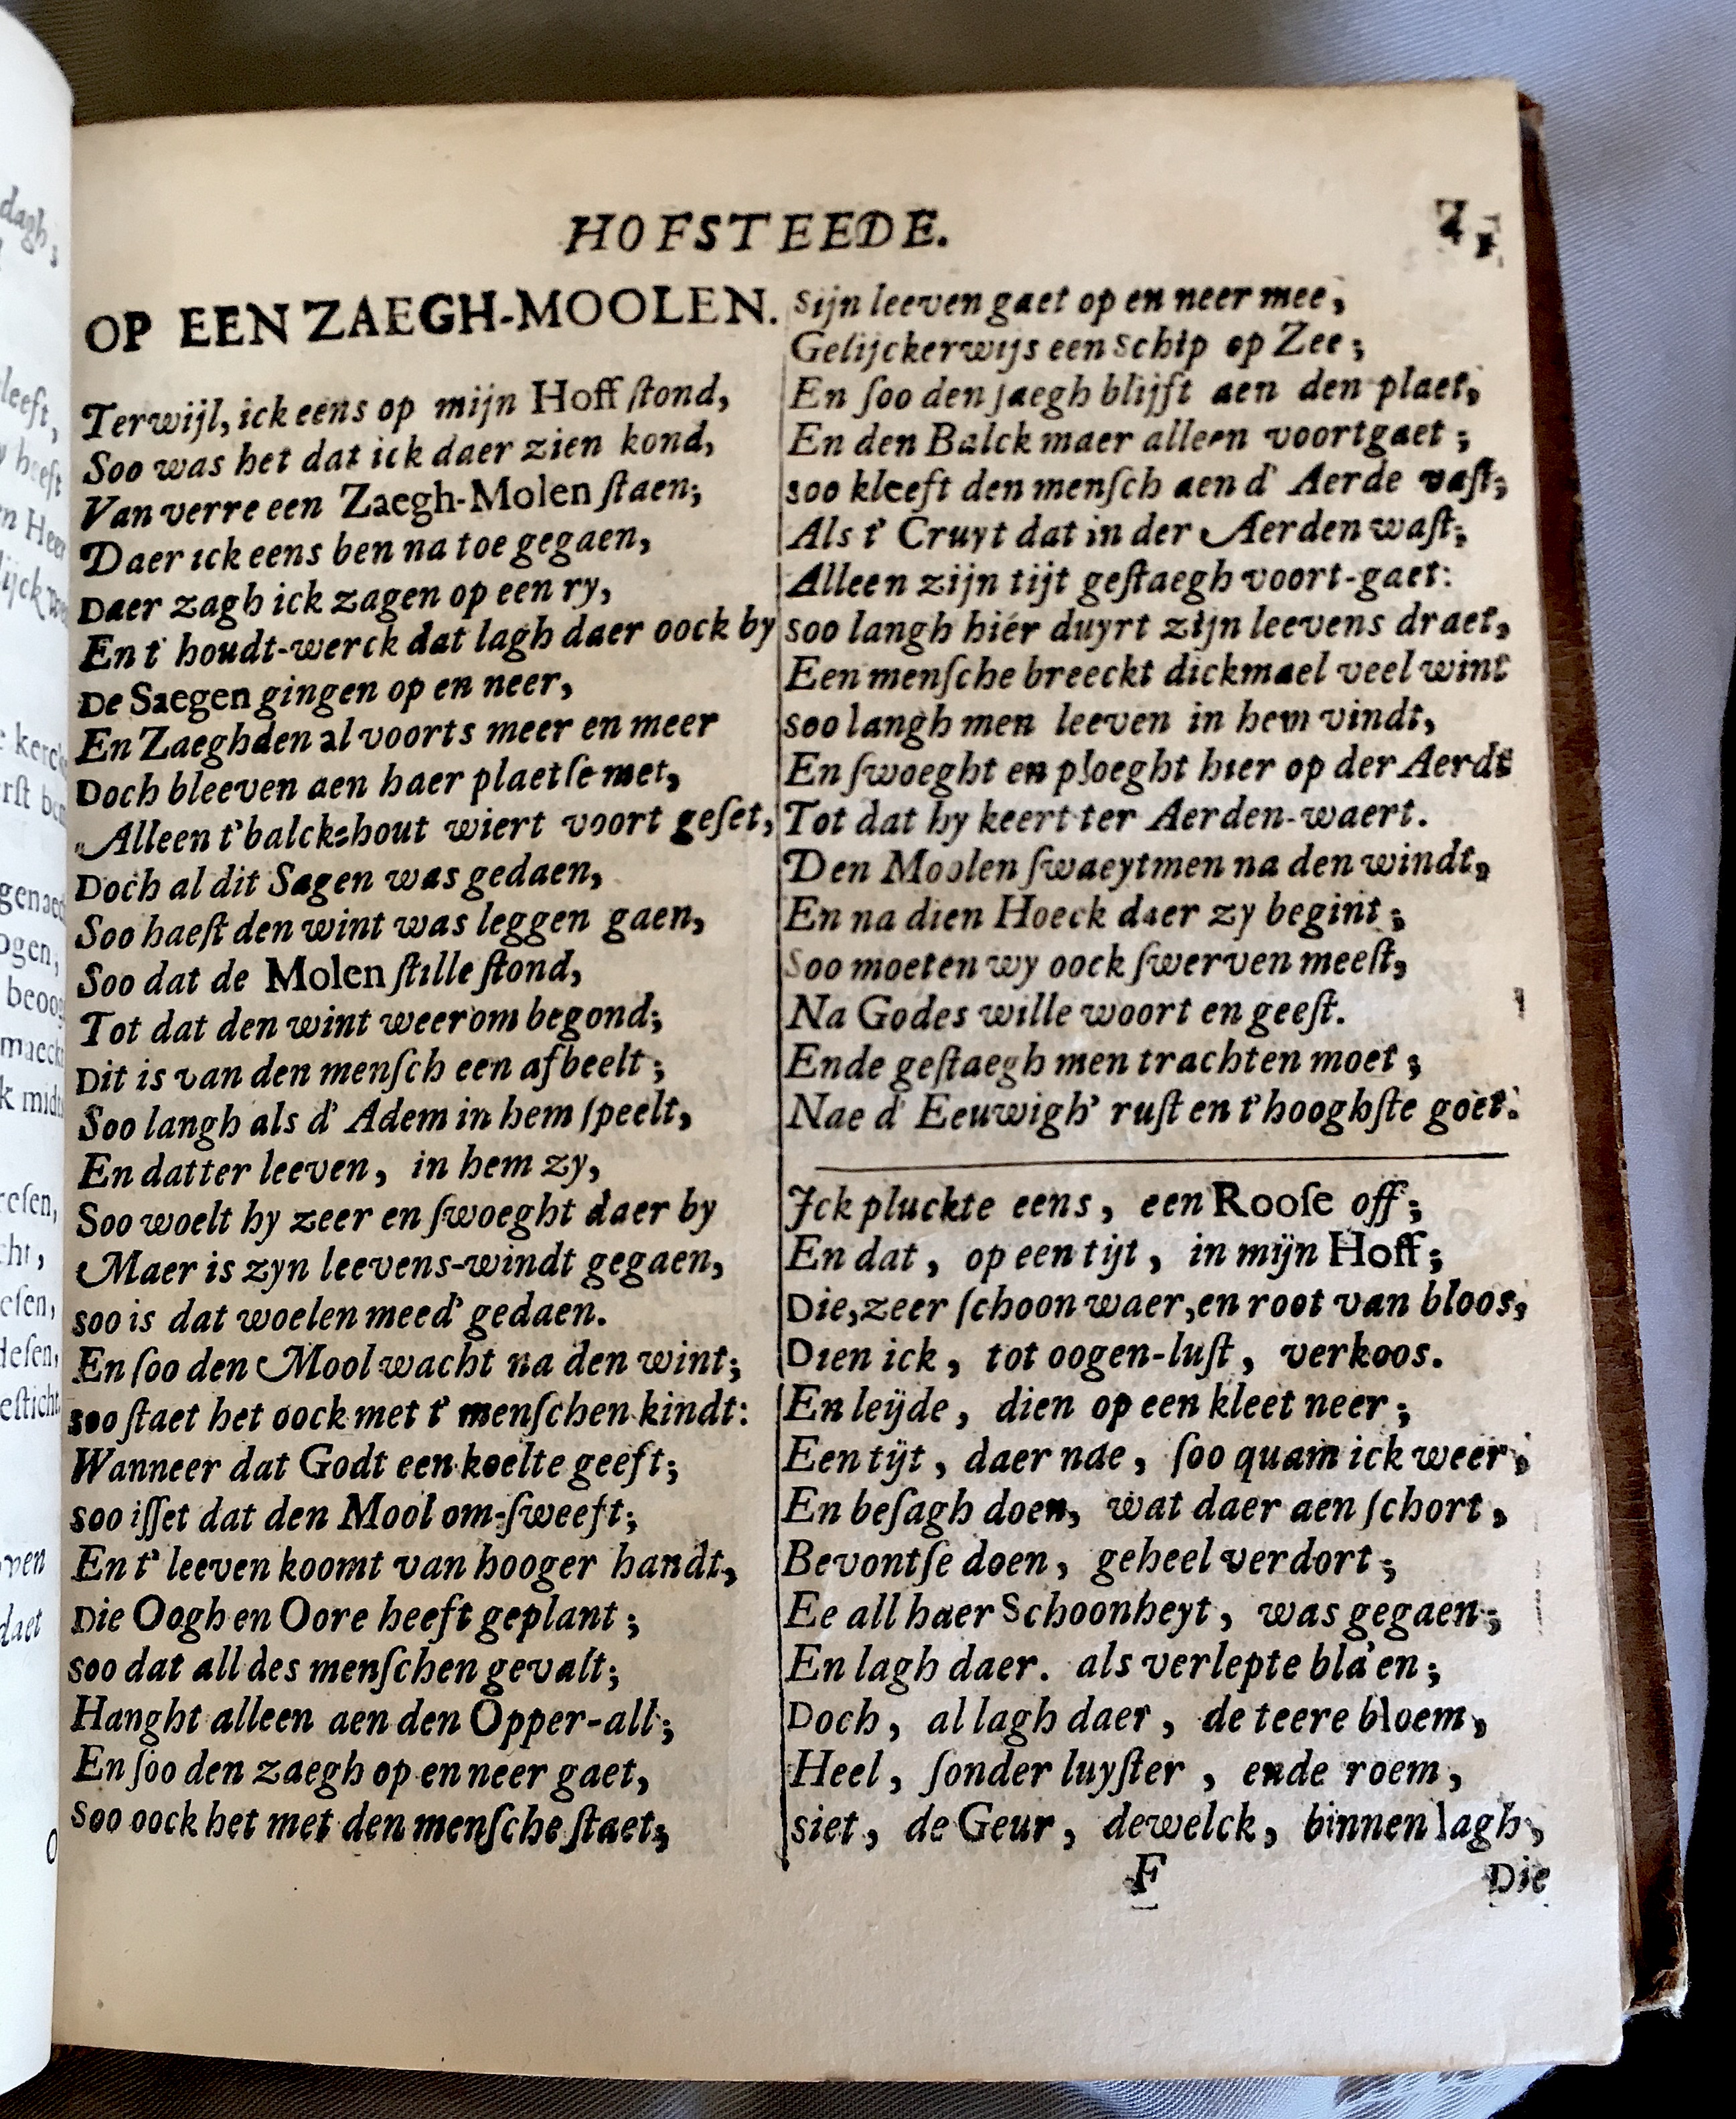 HOFSTEEDE.
OP EEN ZAEGH-MOOLEN.
Terwijl, ick eens op mijn Hoff ſtond,
Soo was het dat ick daer zien kond,
Van verre een Zaegh-Molen ſtaen;
Daer ick eens ben na toe gegaen,
Daer zagh ick zagen op een ry,
En t' houdt-werck dat lagh daer oock by
De Saegen gingen op en neer,
En Zaeghden al voorts meer en meer
Doch bleeven aen haer plaetſe met,
Alleen t'balck-hout wiert voort geſet,
Doch al dit Sagen was gedaen,
Soo haeſt den wint was leggen gaen,
Soo dat de Molen ſtille ſtond,
Tot dat den wint weerom begond;
Dit is van den menſch een afbeelt;
Soo langh als d' Adem in hem ſpeelt,
En datter leeven, in hem zy,
Soo woelt hy zeer en ſwoeght daer by
Maer is zyn leevens-windt gegaen,
soo is dat woelen meed' gedaen.
En ſoo den Mool wacht na den wint;
soo ſtaet het oock met t' menſchen kindt:
Wanneer dat Godt een koelte geeft;
soo iſſet dat den Mool om-ſweeft;
En t' leeven koomt van hooger handt,
Die Oogh en Oore heeft geplant;
soo dat all des menſchen gevalt;
Hanght alleen aen den Opper-all;
En ſoo den zaegh op en neer gaet,
Soo oock het met den menſche ſtaet,
Sijn leeven gaet op en neer mee,
Gelijckerwijs een Schip op Zee;
En ſoo den jaegh blijft aen den plaet,
En den Balck maer alleen voortgaet;
soo kleeft den menſch aen d' Aerde vaſt;
Als t' Cruyt dat in der Aerden waſt;
Alleen zijn tijt geſtaegh voort-gaet:
soo langh hier duyrt zijn leevens draet,
Een menſche breeckt dickmael veel wint
soo langh men leeven in hem vindt,
En ſwoeght en ploeght hier op der Aerdt
Tot dat hy keert ter Aerden-waert.
Den Moolen ſwaeytmen na den windt,
En na dien Hoeck daer zy begint;
Soo moeten wy oock ſwerven meeſt,
Na Godes wille woort en geeſt.
Ende geſtaegh men trachten moet;
Nae d' Eeuwigh' ruſt en t'hooghſte goet.
Ick pluckte eens, een Rooſe off;
En dat, op een tijt, in mijn Hoff;
Die, zeer ſchoon waer, en root van bloos,
Dien ick, tot oogen-luſt, verkoos.
En leijde, dien op een kleet neer;
Een tijt, daer nae, ſoo quam ick weer;
En beſagh doen, wat daer aen ſchort,
Bevontſe doen, geheel verdort;
Ee all haer Schoonheyt, was gegaen;
En lagh daer. als verlepte bla'en;
Doch, al lagh daer, de teere bloem,
Heel, ſonder luyſter, ende roem,
siet, de Geur, dewelck, binnen lagh,
F
Die